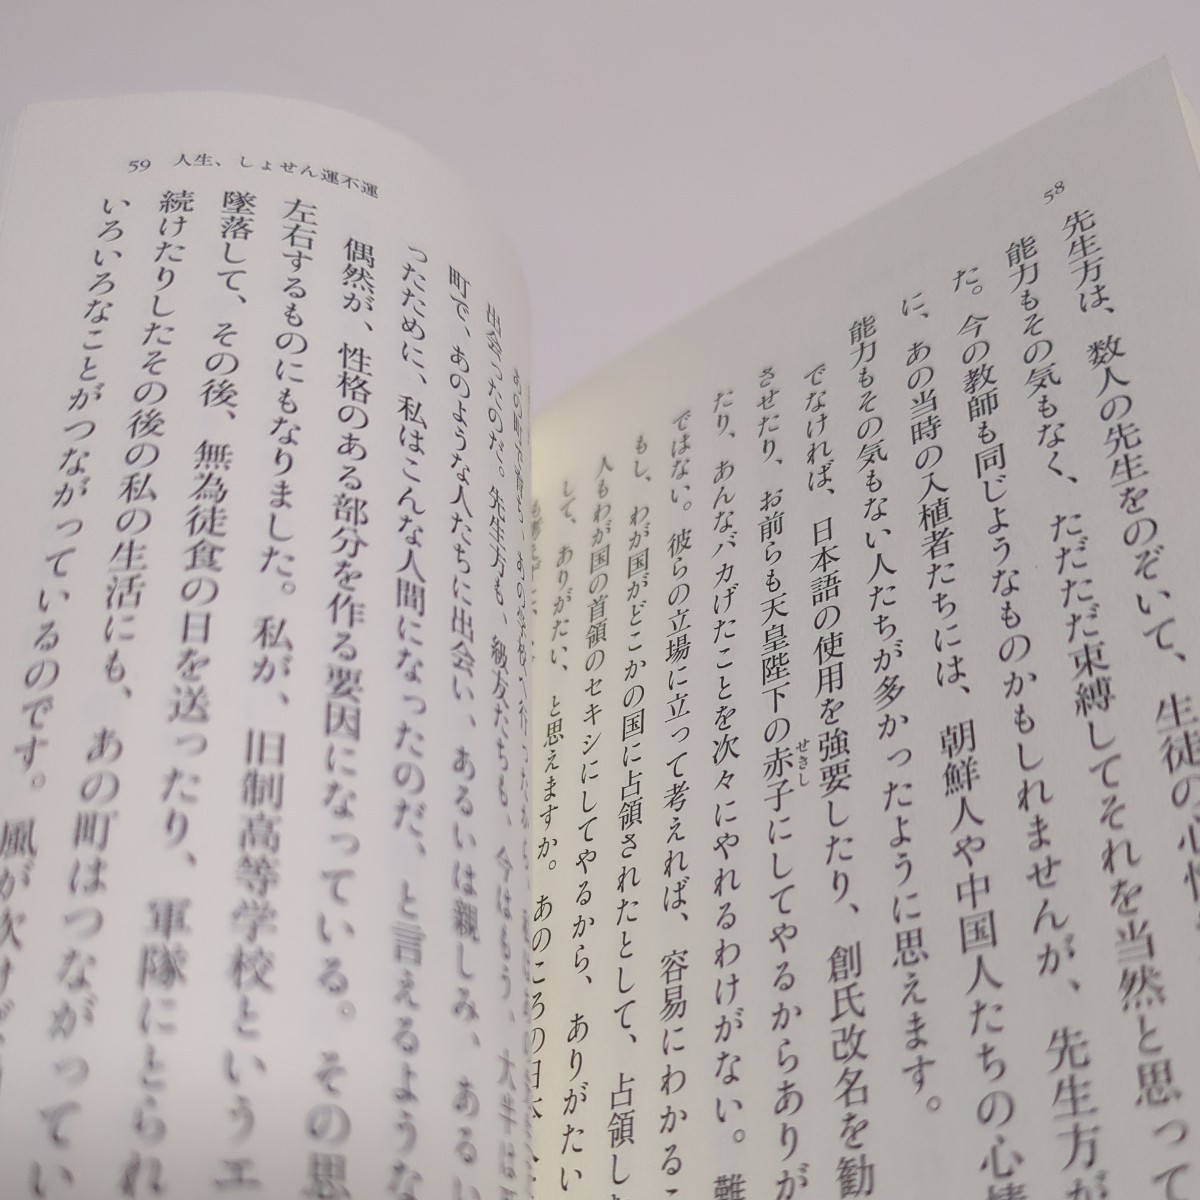 58
先生方は、数人の先生をのぞいて、生徒の心情
能力もその気もなく、ただただ束縛してそれを当然と思って
た。今の教師も同じようなものかもしれませんが、先生方が
に、あの当時の入植者たちには、朝鮮人や中国人たちの心情
能力もその気もない人たちが多かったように思えます。
でなければ、日本語の使用を強要したり、創氏改名を勧
させたり、お前らも天皇陛下の赤子にしてやるからありが
せきし
たり、あんなバカげたことを次々にやれるわけがない。難
ではない。彼らの立場に立って考えれば、容易にわかるこ
もし、わが国がどこかの国に占領されたとして、占領し
人もわが国の首領のセキシにしてやるから、ありがたい
して、ありがたい、と思えますか。あのころの日本人
も考えずに、
59 人生、しょせん運不運
あの町で育ち、あの学校へ行ったから、
出会ったのだ。先生方も、級友たちも、今はもう、大半は
町で、あのような人たちに出会い、あるいは親しみ、ある
ったために、私はこんな人間になったのだ、と言えるような
偶然が、性格のある部分を作る要因になっている。その思
左右するものにもなりました。私が、旧制高等学校というエ
墜落して、その後、無為徒食の日を送ったり、軍隊にとられ
続けたりしたその後の私の生活にも、あの町はつながってい
いろいろなことがつながっているのです。風が吹けば